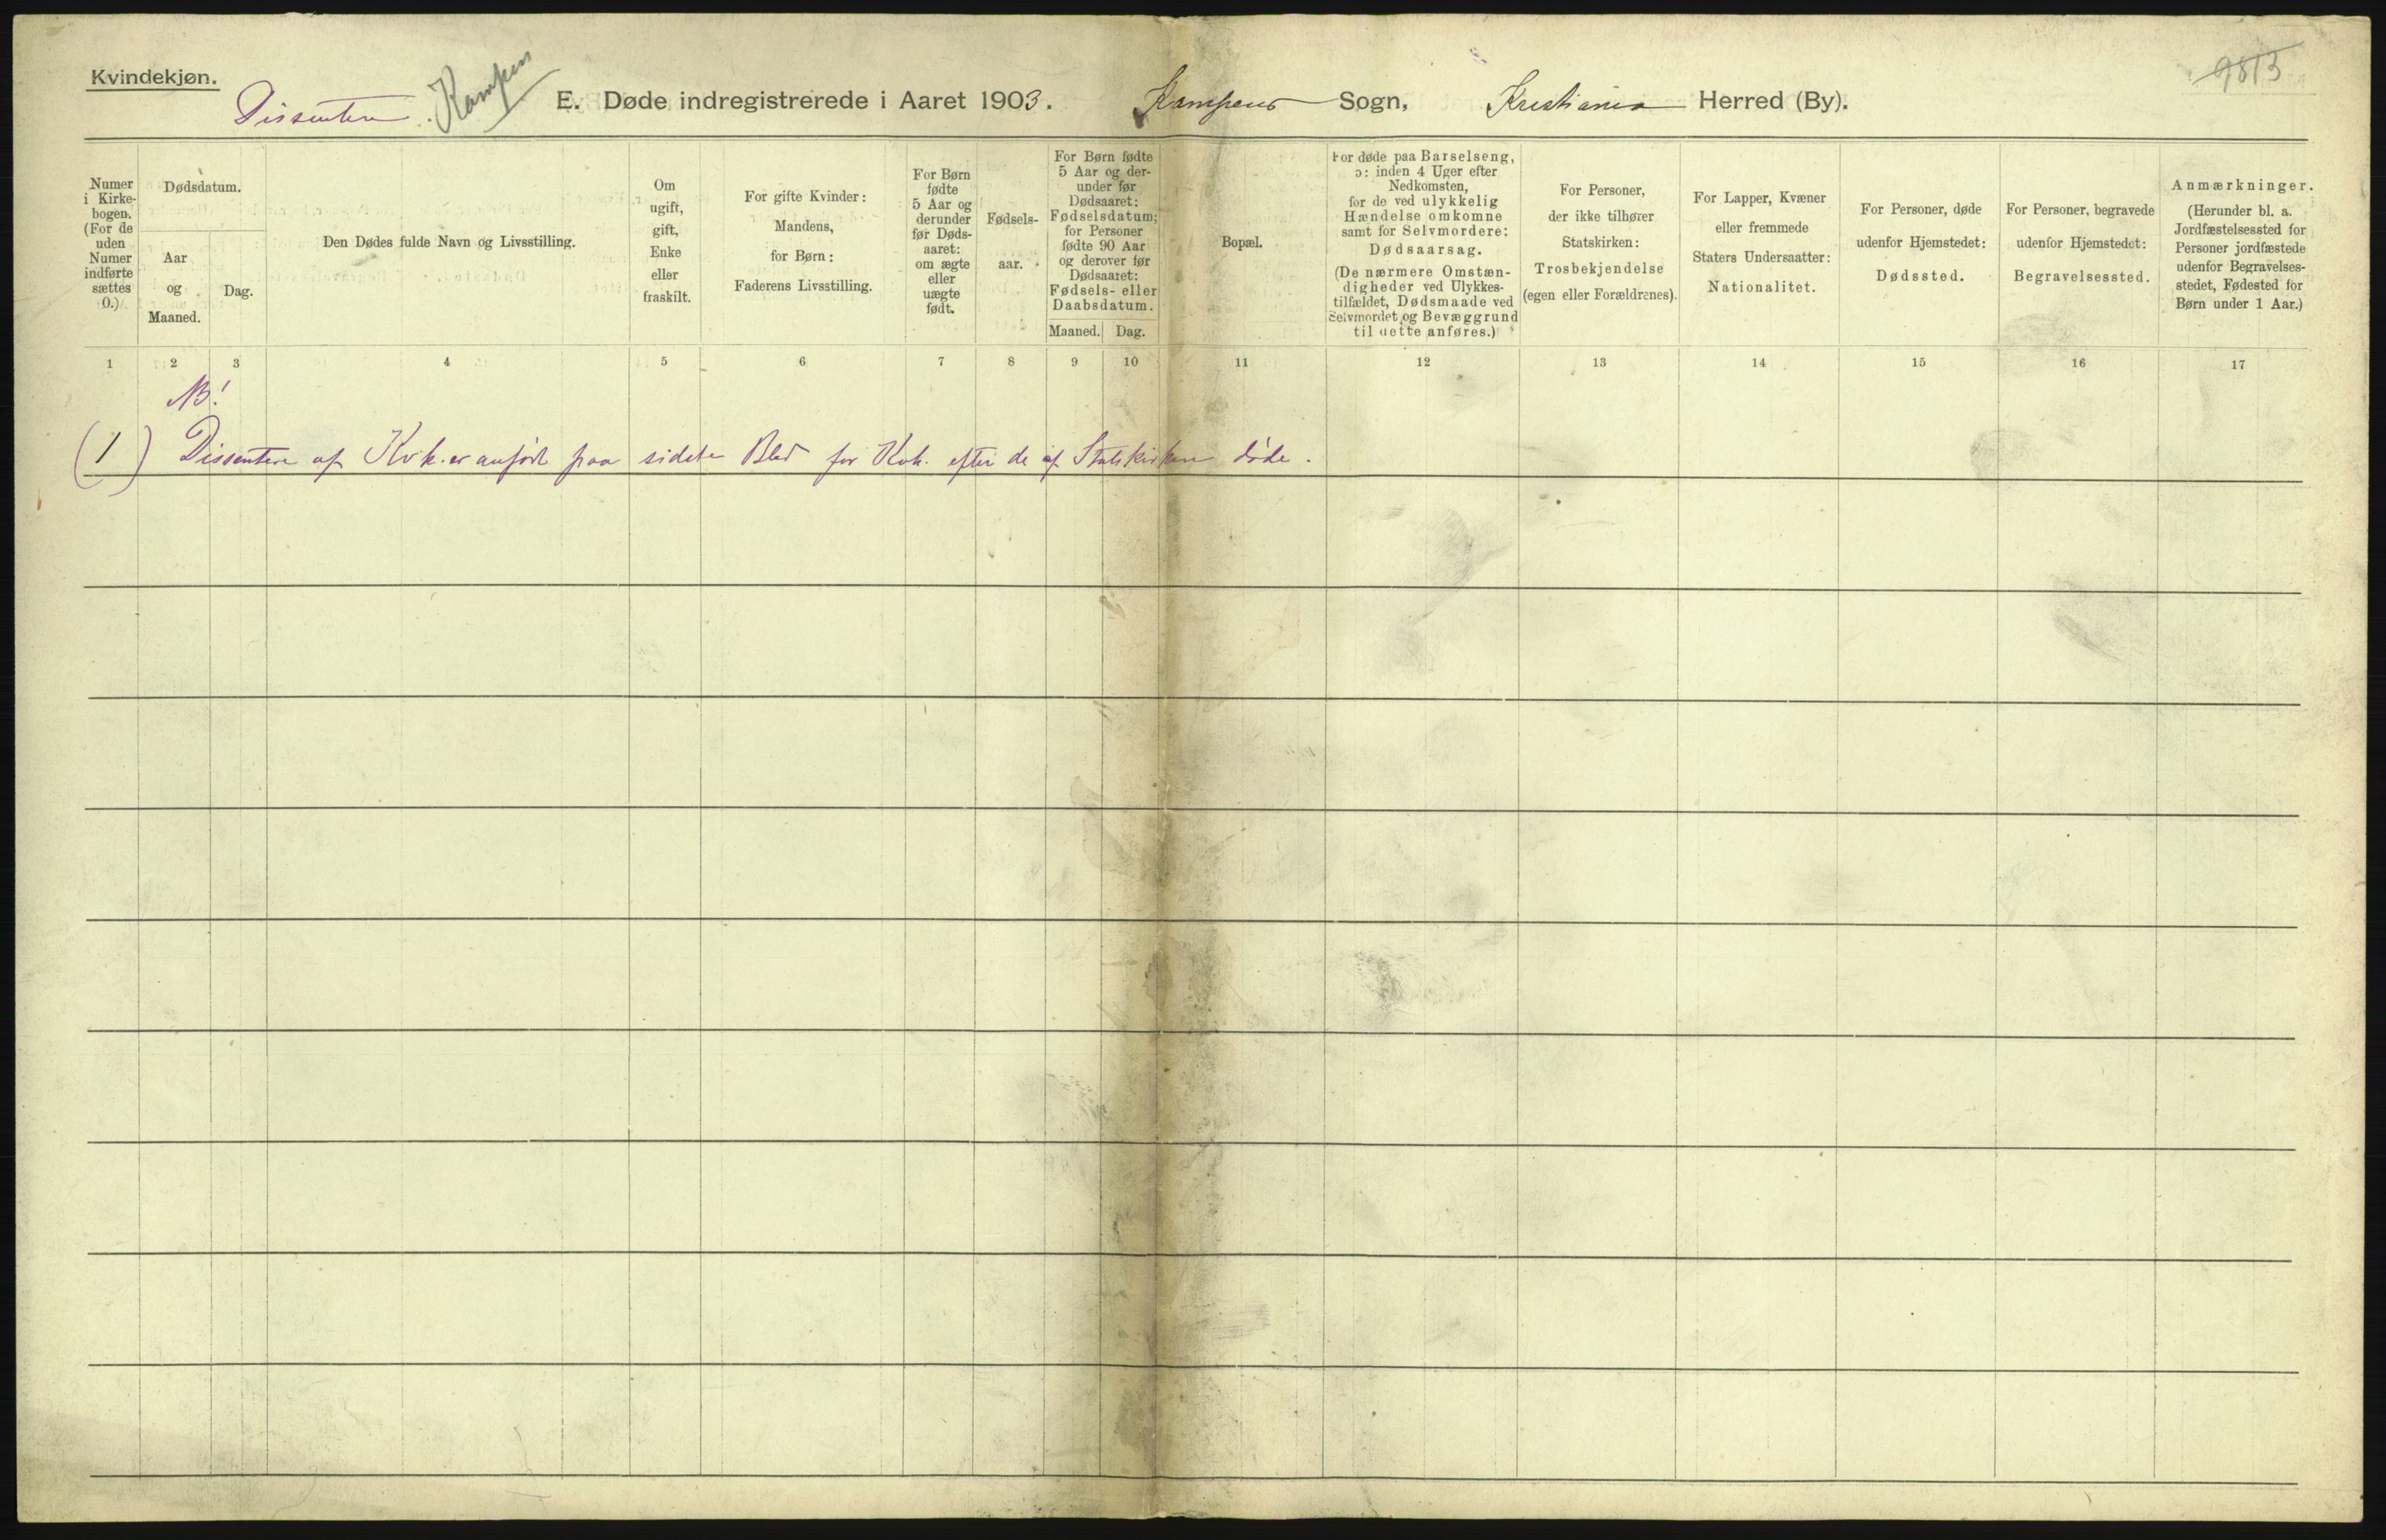 Kvindekjøn.
Dissentere. Kampen
E. Døde indregistrerede i Aaret 1903. Kampens Sogn, Kristiania Herred (By).
9813
Numer
i Kirke-
bogen.
(For de
uden
Numer
indførte
sættes
0.)
Dødsdatum.
Aar
og
Maaned.
Dag.
Den Dødes fulde Navn og Livsstilling.
Om
ugift,
gift,
Enke
eller
fraskilt.
For gifte Kvinder:
Mandens,
for Børn:
Faderens Livsstilling.
For Børn
fødte
5 Aar og
derunder
før Døds-
aaret:
om ægte
eller
uægte
født.
Fødsels-
aar.
For Børn fødte
5 Aar og der-
under før
Dødsaaret:
Fødselsdatum;
for Personer
fødte 90 Aar
og derover før
Dødsaaret:
Fødsels- eller
Daabsdatum.
Maaned. Dag.
Bopæl.
For døde paa Barselseng,
ɔ: inden 4 Uger efter
Nedkomsten,
for de ved ulykkelig
Hændelse omkomne
samt for Selvmordere:
Dødsaarsag.
(De nærmere Omstæn-
digheder ved Ulykkes-
tilfældet, Dødsmaade ved
Selvmordet og Bevæggrund
til dette anføres.)
For Personer,
der ikke tilhører
Statskirken:
Trosbekjendelse
(egen eller Forældrenes).
For Lapper, Kvæner
eller fremmede
Staters Undersaatter:
Nationalitet.
For Personer, døde
udenfor Hjemstedet:
Dødssted.
For Personer, begravede
udenfor Hjemstedet:
Begravelsessted.
Anmærkninger.
(Herunder bl. a.
Jordfæstelsessted for
Personer jordfæstede
udenfor Begravelses-
stedet, Fødested for
Børn under 1 Aar.)
1 2 3 4 5 6 7 8 9 10 11 12 13 14 15 16 17
NB!
(1) Dissentere af Kvk. er anført paa sidste Blad for Kvk. efter de af Statskirken døde.